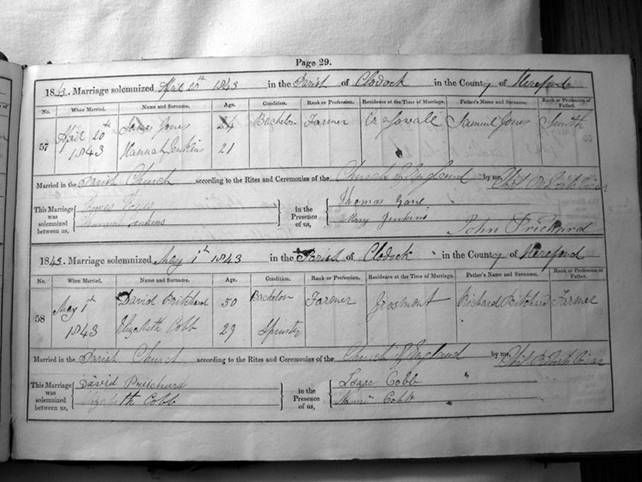 Page 29.
1843. Marriage solemnized April 20th 1843 in the Parish of Clodock in the County of Hereford
No. When Married. Name and Surname. Age. Condition. Rank or Profession. Residence at the Time of Marriage. Father's Name and Surname. Rank or Profession of Father.
57 April 20th James Jones 24 Bachelor Farmer Samuel Jones Smith
1843 Hannah Jenkins 21
Married in the Parish Church according to the Rites and Ceremonies of the Church of England by me,
This Marriage was solemnized between us, James Jones in the Presence of us, Thomas
Hannah Jenkins Mary Jenkins
John Prichard
1843. Marriage solemnized May 1st 1843 in the Parish of Clodock in the County of Hereford
No. When Married. Name and Surname. Age. Condition. Rank or Profession. Residence at the Time of Marriage. Father's Name and Surname. Rank or Profession of Father.
58 May 1st David Pritchard 30 Bachelor Farmer Grosmont Richard Pritchard Farmer
1843 Elizabeth Cobb 29 Spinster
Married in the Parish Church according to the Rites and Ceremonies of the Church of England by me,
This Marriage was solemnized between us, David Pritchard in the Presence of us, Cobb
Elizabeth Cobb Cobb